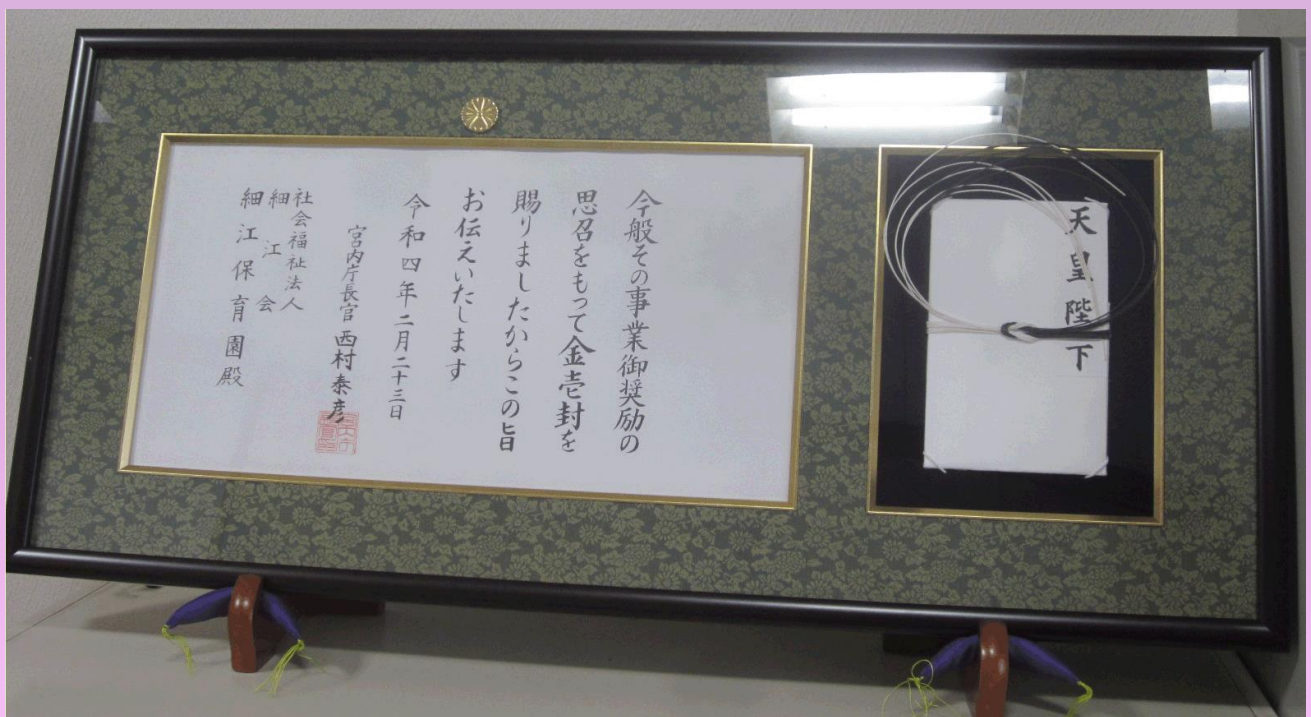 天皇陛下
今般その事業御奨励の
思召をもって金壱封を
賜りましたからこの旨
お伝えいたします
令和四年二月二十三日
宮内庁長官 西村泰彦
社会福祉法人
細江会
細江保育園殿